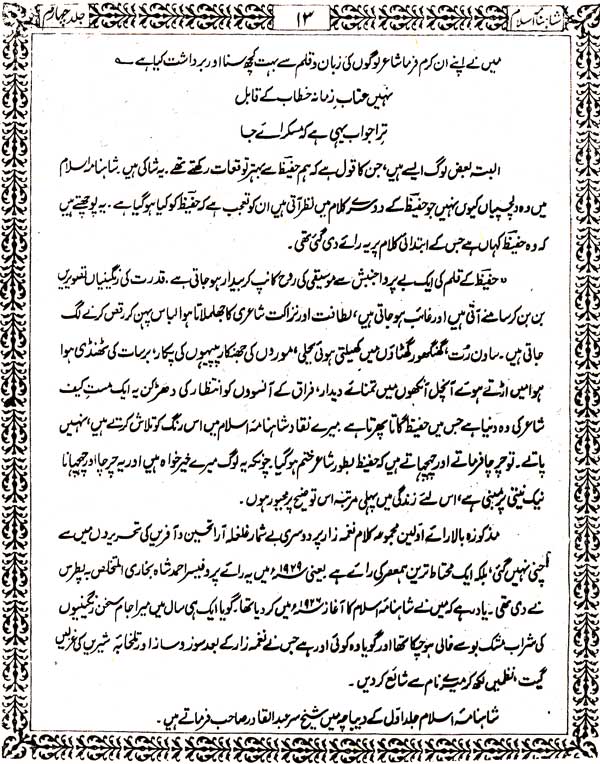 شاہنامۂ اسلام
۱۳
جلد چہارم
میں نے اپنے ان کرم فرما شاعر لوگوں کی زبان و قلم سے بہت کچھ سنا اور برداشت کیا ہے ؎
نہیں عتاب زمانہ خطاب کے قابل
ترا جواب یہی ہے کہ مسکرائے جا
البتہ بعض لوگ ایسے ہیں، جن کا قول ہے کہ ہم حفیظ سے بہتر توقعات رکھتے تھے۔ یہ شاکی ہیں۔ شاہنامہ اسلام
میں وہ دلچسپیاں کیوں نہیں جو حفیظ کے دوسرے کلام میں نظر آتی ہیں ان کو تعجب ہے کہ حفیظ کو کیا ہو گیا ہے۔ یہ پوچھتے ہیں
کہ وہ حفیظ کہاں ہے جس کے ابتدائی کلام پر یہ رائے دی گئی تھی۔
"حفیظ کے قلم کی ایک بے پروا جنبش سے موسیقی کی روح کانپ کر بیدار ہو جاتی ہے۔ قدرت کی رنگینیاں تصویریں
بن بن کر سامنے آتی ہیں اور غائب ہو جاتی ہیں، لطافت اور نزاکت شاعری کا جھلملاتا ہوا لباس پہن کر رقص کرنے لگ
جاتی ہیں۔ ساون رُت، گھنگھور گھٹاؤں میں کھیلتی ہوئی بجلی، موروں کی جھنکار پپیہوں کی پکار، برسات کی ٹھنڈی ہوا
ہوا میں اڑتے ہوئے آنچل آنکھوں میں تمنائے دیدار، فراق کے آنسوؤں کو انتظار کی دھڑکن یہ ایک مست کیف
شاعر کی وہ دنیا ہے جس میں حفیظ گاتا پھرتا ہے۔ میرے نقاد شاہنامہ اسلام میں اس رنگ کو تلاش کرتے ہیں، نہیں
پاتے۔ تو چرچا فرماتے اور چہچہاتے ہیں کہ حفیظ بطور شاعر ختم ہو گیا۔ چونکہ یہ لوگ میرے خیر خواہ ہیں اور یہ چرچا اور چہچہانا
نیک نیتی پر مبنی ہے، اس لئے زندگی میں پہلی مرتبہ اس توضیح پر مجبور ہوں۔
مذکورہ بالا رائے اولین مجموعہ کلام نغمہ زار پر دوسری بے شمار غلغلہ آرا تحسین و آفرین کی تحریروں میں سے
چنی نہیں گئی، بلکہ ایک محتاط ترین ہمعصر کی رائے ہے یعنی ۱۹۲۹ء میں یہ رائے پروفیسر احمد شاہ بخاری المتخلص بہ پطرس
نے دی تھی۔ یاد رہے کہ میں نے شاہنامہ اسلام کا آغاز ۱۹۲۶ء میں کر دیا تھا۔ گویا ایک ہی سال میں میرا جام سخن رنگینیوں
کی شراب مشک بو سے خالی ہو چکا تھا اور گویا وہ کوئی اور ہے جس نے نغمہ زار کے بعد سوز و ساز اور تلخابۂ شیریں کی غزلیں
گیت، نظمیں لکھ کر میرے نام سے شائع کر دیں۔
شاہنامہ اسلام جلد اول کے دیباچہ میں شیخ سر عبدالقادر صاحب فرماتے ہیں۔